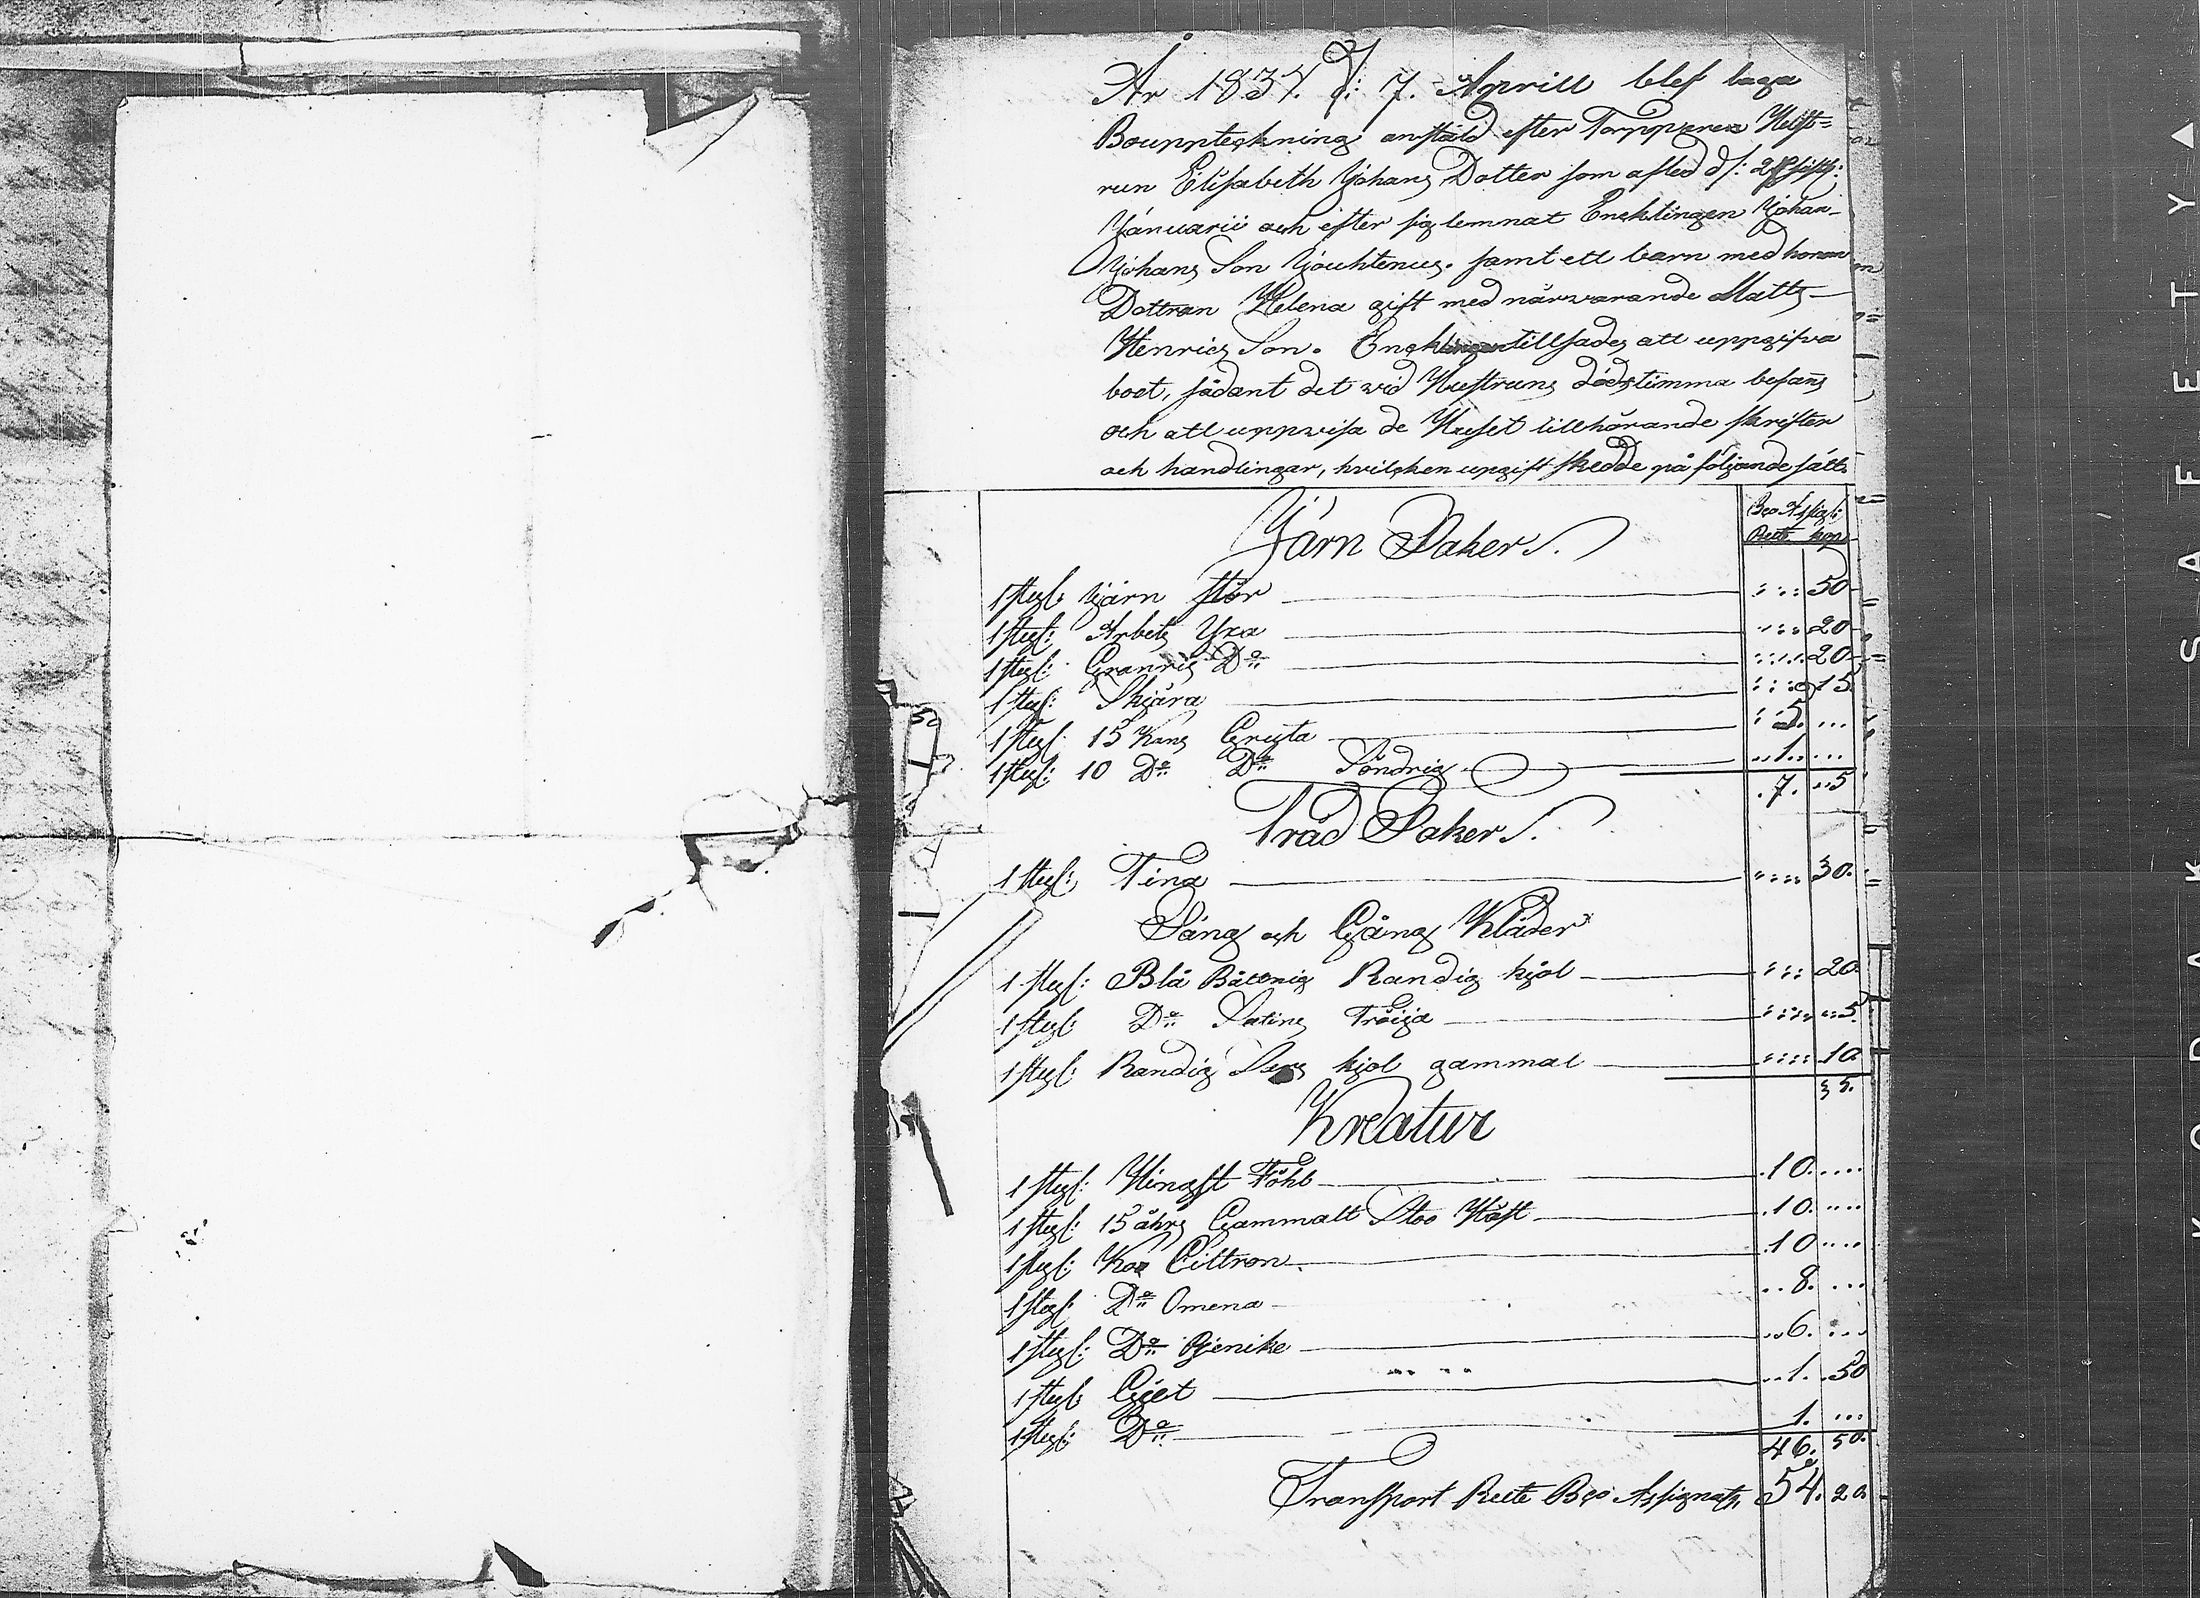 År 1837. d: 7. Aprill blef laga
Bouppteckning anstäld efter Torpparen Hust=
run Elisabeth Johans Dotter som afled d: sistl:
Januarii och efter sig lemnat Encklingen Johan
Johans Son Jouhtenus. samt ett barn med honom
Dottran Helena gift med närvarande Matts
Henrics Son. Encklingen tillsades att uppgifva
boet, sådant det vid Hustruns dödstimma befans
och att uppvisa de Huset tillhörande skrifter
och handlingar, hvilcken upgift skedde på följande sätt
Bco Assign:
Järn Saker.
Rub kop
1 styc: Järn stör :::: 50
1 styc: Arbets Yxa :::: 20
1 styc: Granris Do :::: 20
1 styc: Skjära :::: 15
1 styc: 15 Kans Gryta : 5. ...
1 styc: 10 Do Do Söndrig ..1. ...
.7. ..5
Träd Saker.
1 styc: Tina :::: 30.
Säng och Gång Kläder
1 styc: Blå Båtnig Randig kjol :::: 20
1 styc: Do Satins Tröija :::: ..5.
1 styc: Randig Sers kjol gammal :::: 10
35.
Kreatur
1 styc: Hingst Fohl .10. ....
1 styc: 15 åhrs Gammalt Stoo Häst .10. ....
1 styc: Koo Cittron .10 ....
1 styc: Do Omena ..8. ...
1 styc: Do Ojenike ..6. ...
1 styc: Gjet ..1. .50
1 styc: Do 1. ...
46. 50.
Transport Rub Bco Assignats. 54. 20.
SAFETY ▲
KODAK